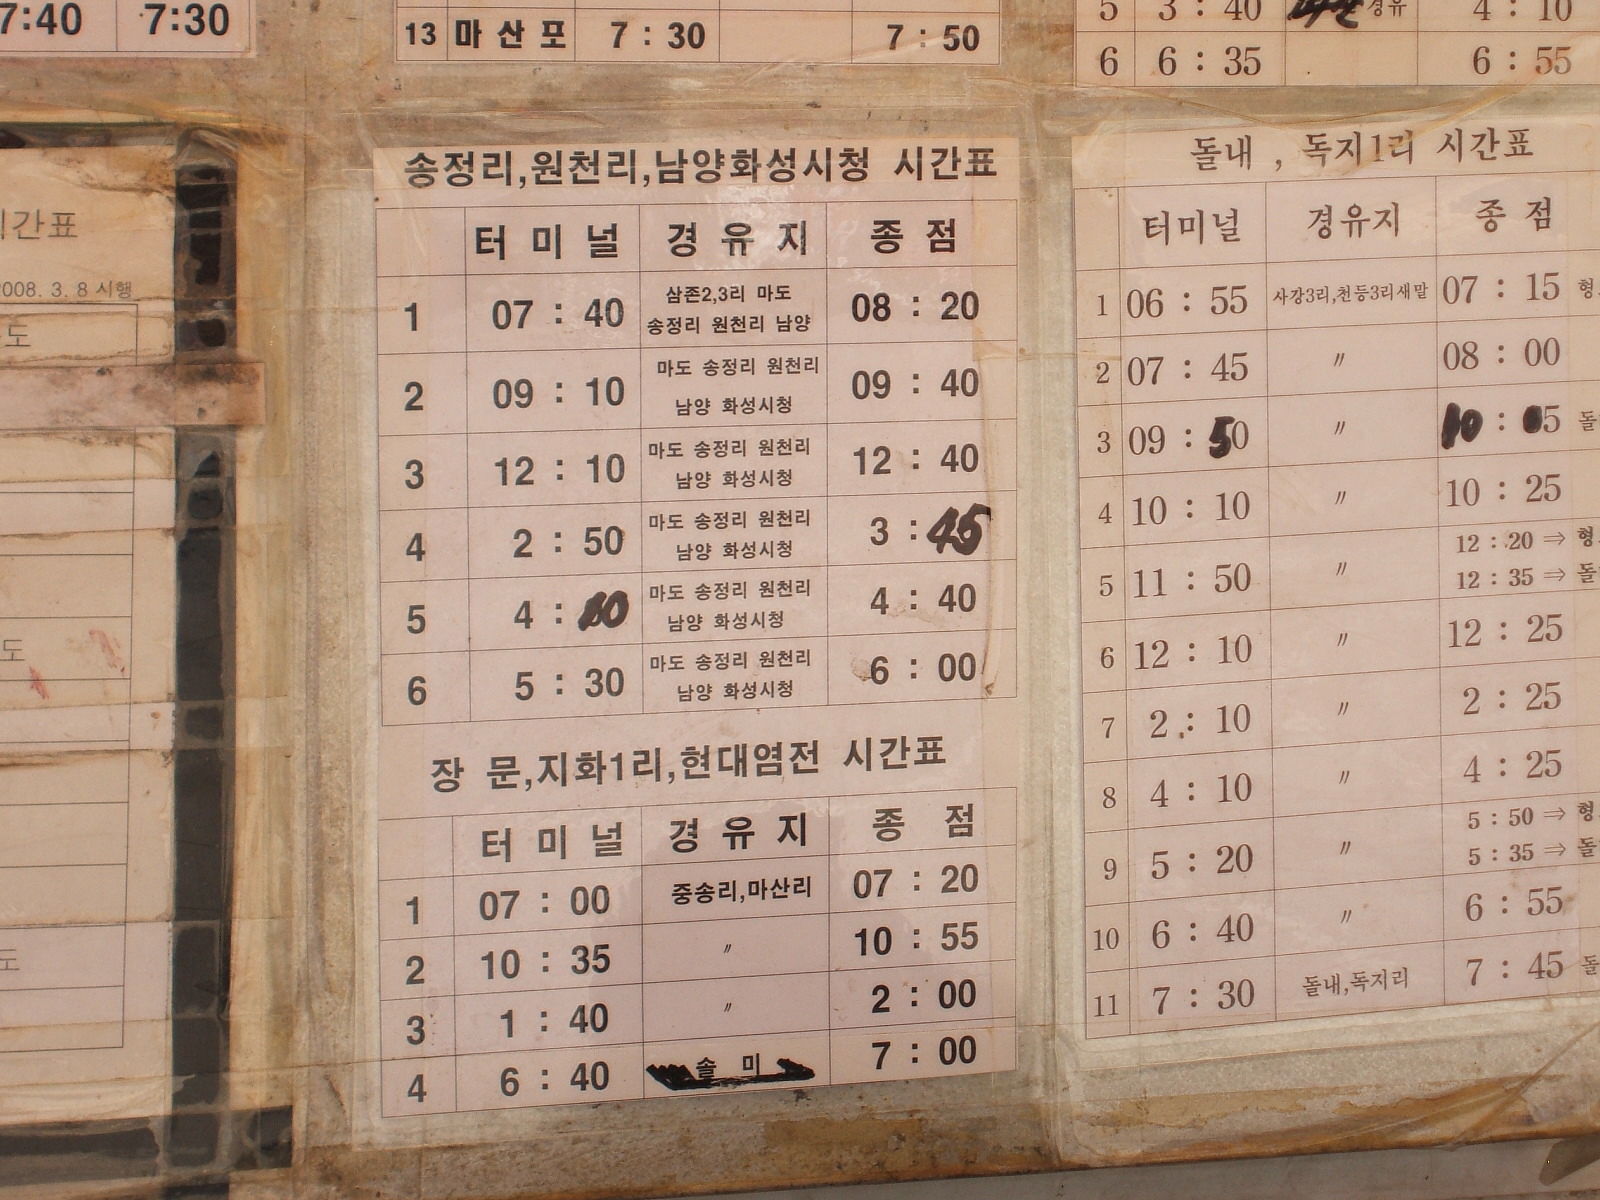 7:40 7:30
13 마산포 7 : 30 7 : 50
5 3 : 40 경유 4 : 10
6 6 : 35 6 : 55
시간표
2008. 3. 8 시행
도
도
도
송정리,원천리,남양화성시청 시간표
터미널 경유지 종점
1 07 : 40 삼존2,3리 마도 08 : 20
송정리 원천리 남양
2 09 : 10 마도 송정리 원천리 09 : 40
남양 화성시청
3 12 : 10 마도 송정리 원천리 12 : 40
남양 화성시청
4 2 : 50 마도 송정리 원천리 3 : 45
남양 화성시청
5 4 : 마도 송정리 원천리 4 : 40
남양 화성시청
6 5 : 30 마도 송정리 원천리 6 : 00
남양 화성시청
장 문,지화1리,현대염전 시간표
터미널 경유지 종 점
1 07 : 00 중송리,마산리 07 : 20
2 10 : 35 〃 10 : 55
3 1 : 40 〃 2 : 00
4 6 : 40 솔 미 7 : 00
돌내 , 독지1리 시간표
터미널 경유지 종 점
1 06 : 55 사강3리,천등3리새말 07 : 15 형
2 07 : 45 〃 08 : 00
3 09 : 50 〃 10 : 05 돌
4 10 : 10 〃 10 : 25
5 11 : 50 〃 12 : 20 ⇒ 형
12 : 35 ⇒ 돌
6 12 : 10 〃 12 : 25
7 2 : 10 〃 2 : 25
8 4 : 10 〃 4 : 25
9 5 : 20 〃 5 : 50 ⇒ 형
5 : 35 ⇒ 돌
10 6 : 40 〃 6 : 55
11 7 : 30 돌내,독지리 7 : 45 돌